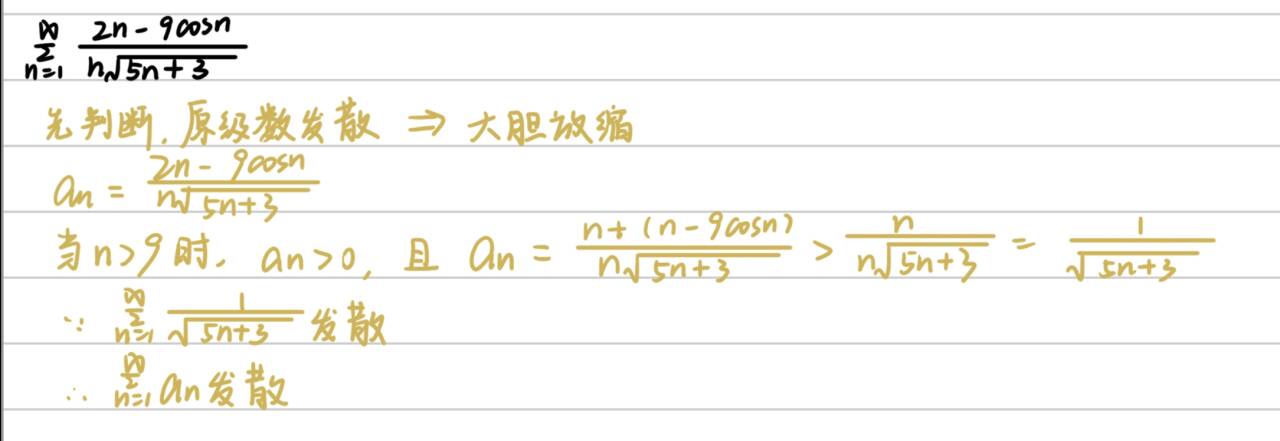 ∞∑n=1 (2n - 9cosn)/(n√(5n+3))
先判断,原级数发散 ⇒ 大胆放缩
an = (2n - 9cosn)/(n√(5n+3))
当n>9时, an>0, 且 an = (n+(n-9cosn))/(n√(5n+3)) > n/(n√(5n+3)) = 1/√(5n+3)
∵ ∞∑n=1 1/√(5n+3) 发散
∴ ∞∑n=1 an发散